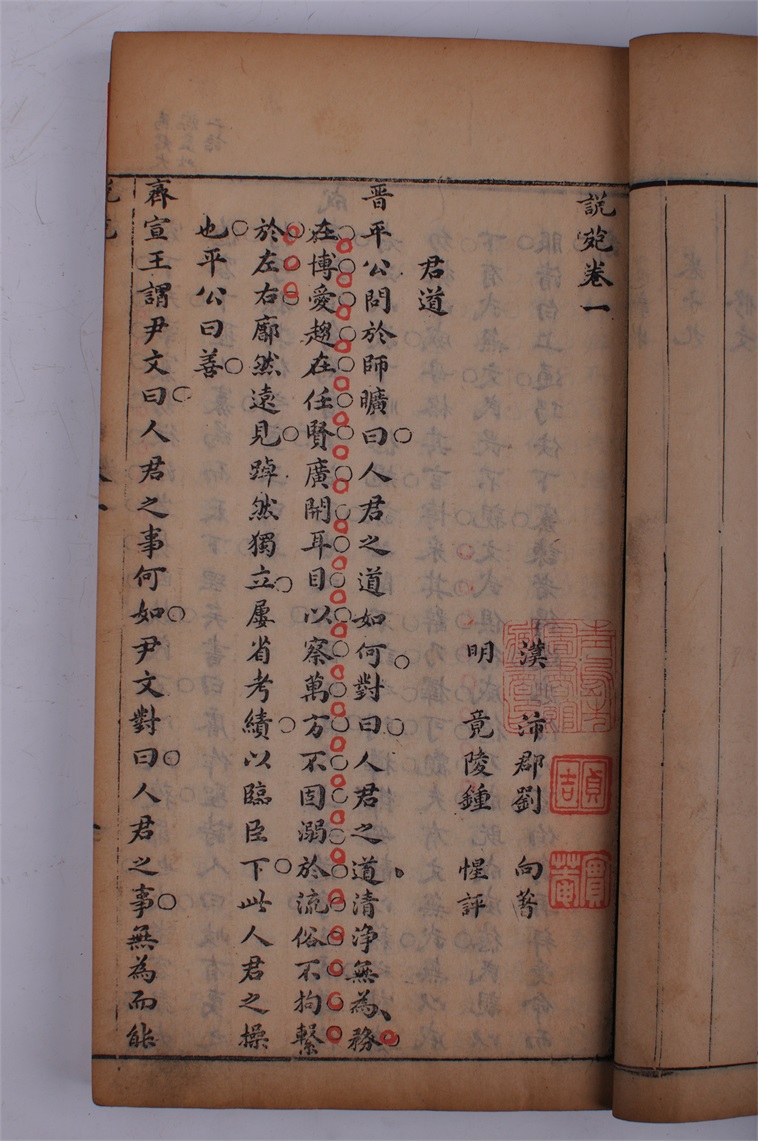 說苑卷一
漢 沛郡劉 向著
明 竟陵鍾 惺評
君道
晉平公問於師曠曰人君之道如何對曰人君之道清淨無為務
在博愛趨在任賢廣開耳目以察萬方不固溺於流俗不拘繫
於左右廓然遠見踔然獨立屢省考績以臨臣下此人君之操
也平公曰善
齊宣王謂尹文曰人君之事何如尹文對曰人君之事無為而能
貞吉
實菴